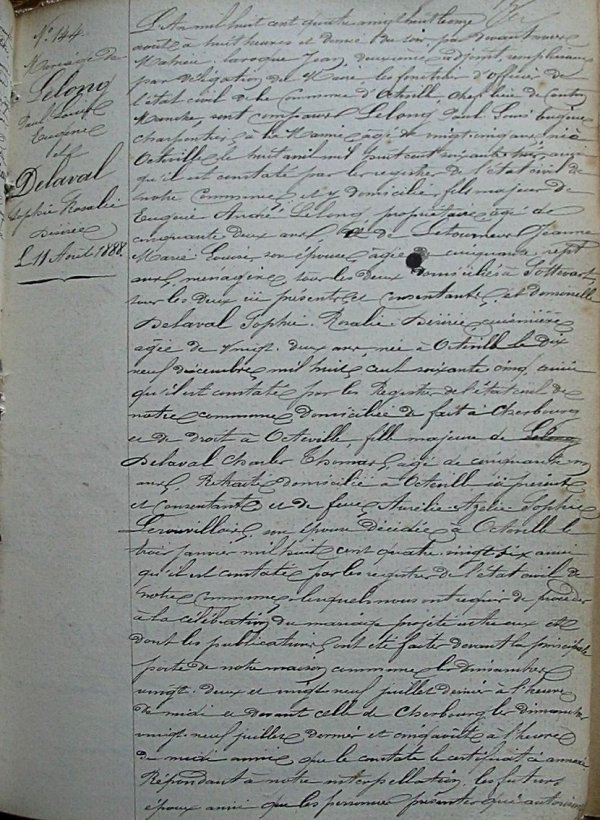 N° 144.
Mariage de
Lelong
Paul Louis
Eugène
et
Delaval
Sophie Rosalie
Désirée
L 11 Août 1888.
L'An mil huit cent quatre vingt huit le onze
août à huit heures et demie du soir, par devant nous
Mahieu Laroque Jean, deuxième adjoint, remplissant
par délégation du Maire les fonctions d'Officier de
l'état civil de la Commune d'Octeville, Chef lieu de Canton
Manche, sont comparus Lelong Paul Louis Eugène
charpentier, à la Marine âgé de vingt cinq ans né à
Octeville le huit avril mil huit cent soixante trois, ainsi
qu'il est constaté par les registres de l'état civil de
notre Commune, et y domicilié, fils majeur de
Eugène André Lelong, propriétaire âgé de
cinquante deux ans et de Letourneur Jeanne
Marie Louise son épouse âgée cinquante sept
ans, ménagère tous les deux domiciliés à Sottevast
tous les deux ici présents et consentants, et demoiselle
Delaval Sophie Rosalie Désirée
âgée de vingt deux ans née à Octeville le dix
neuf décembre mil huit cent soixante cinq, ainsi
qu'il est constaté par les Registres de l'état civil de
notre commune domiciliée de fait à Cherbourg
et de droit à Octeville, fille majeure de Lelong
Delaval Charles Thomas, âgé de cinquante
ans, Retraité domicilié à Octeville ici présent
et consentant et de feue Aurélie Azélie Sophie
Lerouvillois, son épouse décédée à Octeville le
trois janvier mil huit cent quatre vingt six ainsi
qu'il est constaté par les registres de l'état civil de
notre commune, lesquels nous ont requis de procéder
à la célébration du mariage projeté entre eux et
dont les publications ont été faites devant la principale
porte de notre maison commune les dimanches
vingt deux et vingt neuf juillet dernier à l'heure
de midi et devant celle de Cherbourg les dimanches
vingt neuf juillet dernier et cinq août à l'heure
de midi ainsi que le constate le certificat ci annexé
Répondant à notre interpellation, les futurs
époux ainsi que les personnes présentes qui autorisent